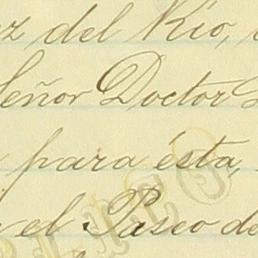 z del Rio,
Señor Doctor
para ésta,
el Paseo de